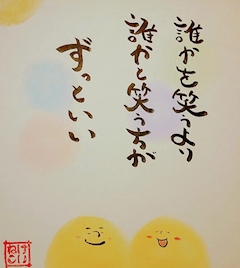 誰かを笑うより
誰かと笑う方が
ずっといい